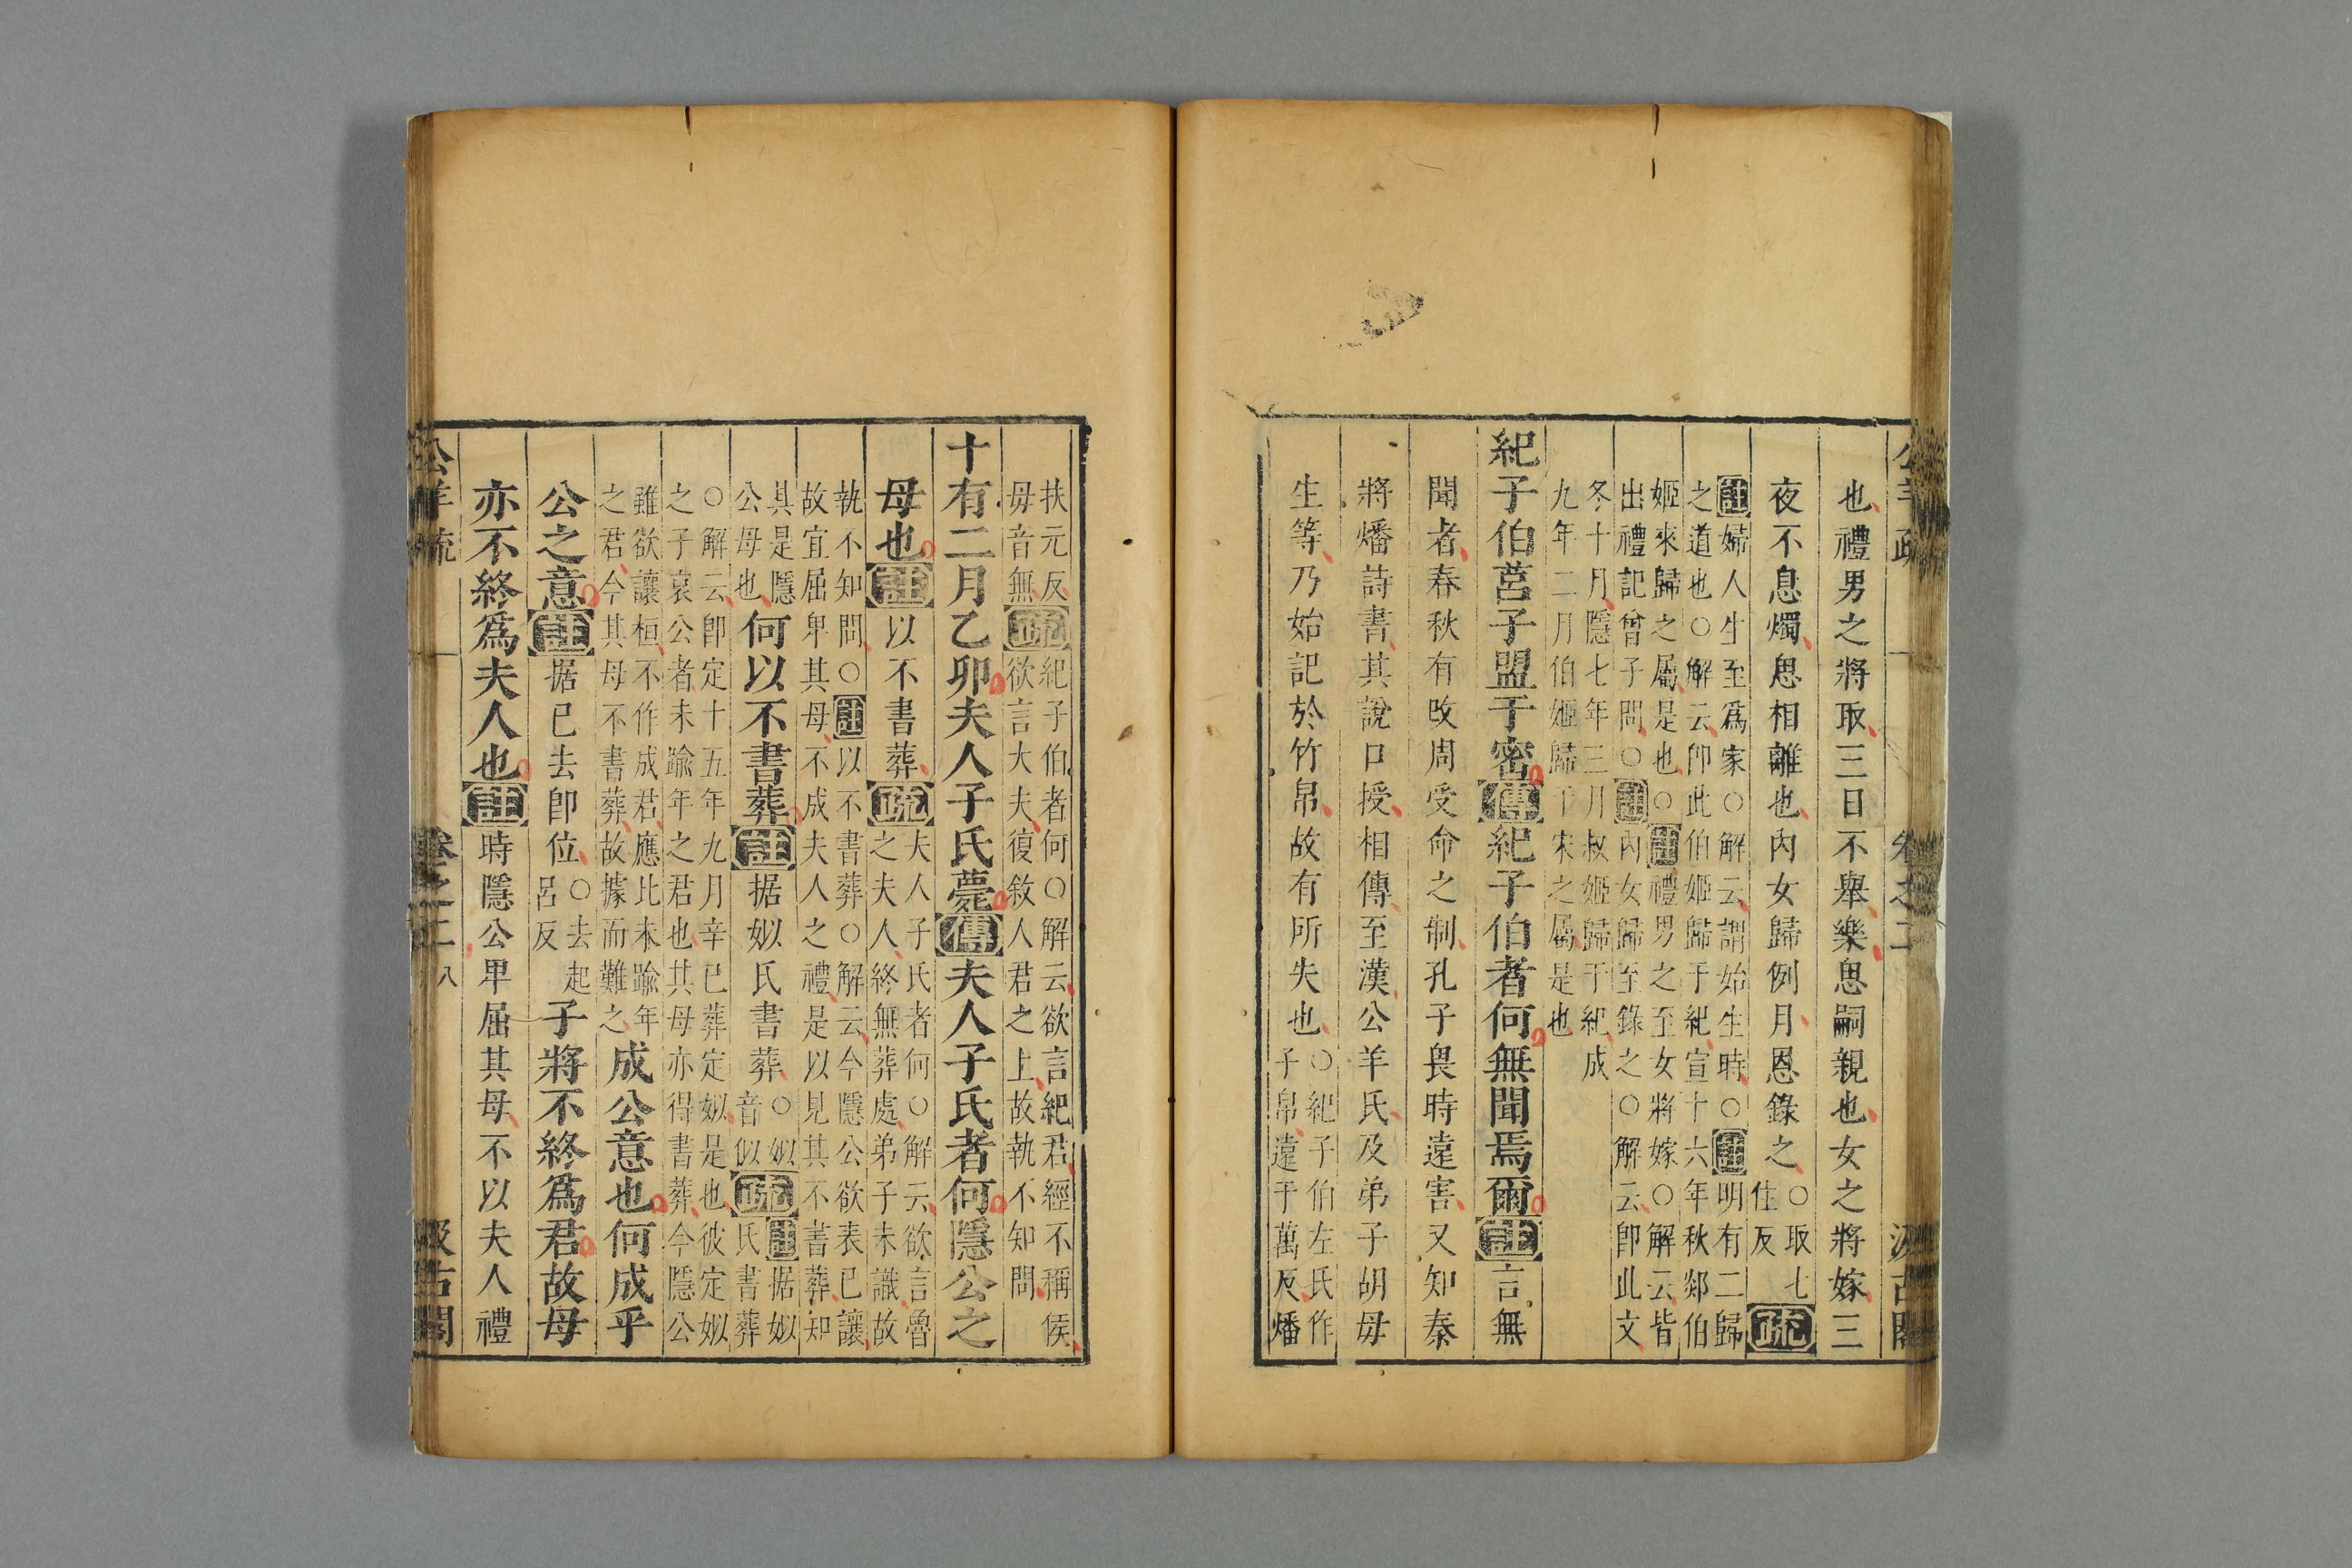 公羊疏 卷之二 汲古閣
也禮男之將取三日不舉樂思嗣親也女之將嫁三
夜不息燭思相離也內女歸例月恩錄之○取七住反疏
註婦人生至爲家○解云謂始生時○註明有二歸
之道也○解云卽此伯姬歸于紀宣十六年秋郯伯
姬來歸之屬是也○註禮男之至女將嫁○解云皆
出禮記曾子問○註內女歸至錄之○解云卽此文
冬十月隱七年三月叔姬歸于紀成
九年二月伯姬歸于宋之屬是也
紀子伯莒子盟于密傳紀子伯者何無聞焉爾註言無
聞者春秋有改周受命之制孔子畏時遠害又知秦
將燔詩書其說口授相傳至漢公羊氏及弟子胡毋
生等乃始記於竹帛故有所失也○紀子伯左氏作子帛遠于萬反燔
扶元反毋音無疏紀子伯者何○解云欲言紀君經不稱侯
欲言大夫復敘人君之上故執不知問
十有二月乙卯夫人子氏薨傳夫人子氏者何隱公之
母也註以不書葬疏夫人子氏者何○解云欲言魯
之夫人終無葬處弟子未識故
執不知問○註以不書葬○解云今隱公欲表已讓
故宜屈卑其母不成夫人之禮是以見其不書葬知
其是隱公母也何以不書葬註据姒氏書葬○姒音似疏註据姒氏書葬
○解云卽定十五年九月辛巳葬定姒是也彼定姒
之子哀公者未踰年之君也其母亦得書葬今隱公
雖欲讓桓不作成君應比未踰年
之君今其母不書葬故據而難之成公意也何成乎
公之意註据已去卽位○去起呂反子將不終爲君故母
亦不終爲夫人也註時隱公卑屈其母不以夫人禮
公羊疏 卷之二 八 汲古閣